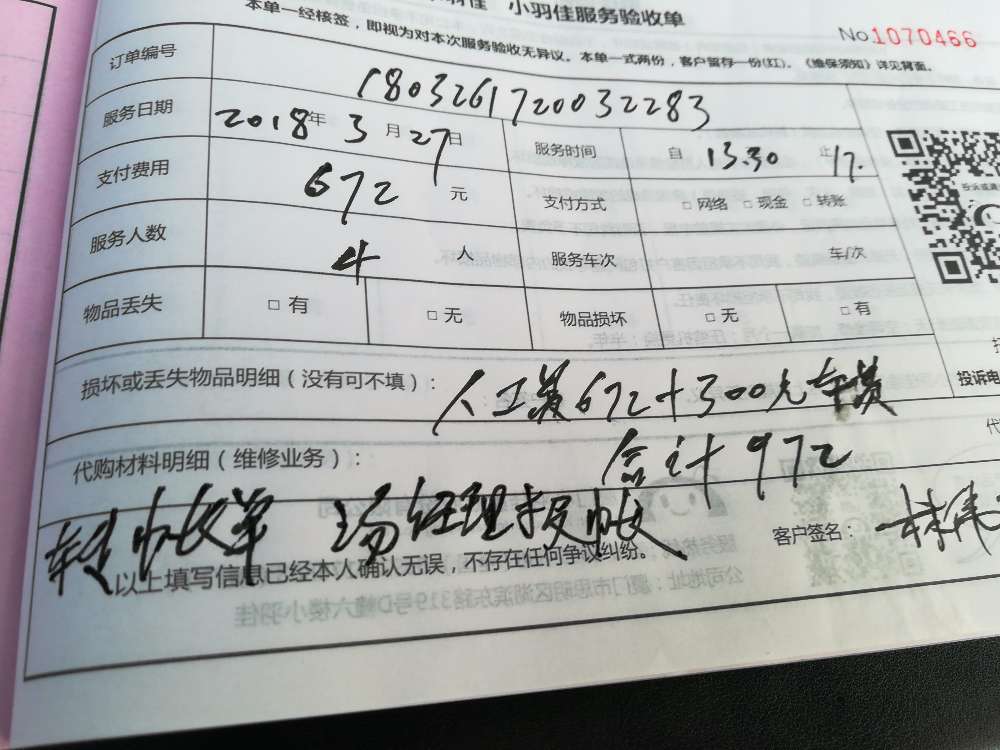 小羽佳 小羽佳服务验收单
本单一经核签，即视为对本次服务验收无异议。本单一式两份，客户留存一份(红)。《维保须知》详见背面。
No 1070466
订单编号 1803261720032283
服务日期 2018年 3 月 27 日 服务时间 自 13.30 止 17.
支付费用 672 元 支付方式 □ 网络 □ 现金 □ 转账
服务人数 4 人 服务车次 车/次
物品丢失 □ 有 □ 无 物品损坏 □ 无 □ 有
损坏或丢失物品明细（没有可不填）： 人工费672+300元车费
投诉电
代购材料明细（维修业务）： 合计972
转帐收单 经理报帐
客户签名： 林
以上填写信息已经本人确认无误，不存在任何争议纠纷。